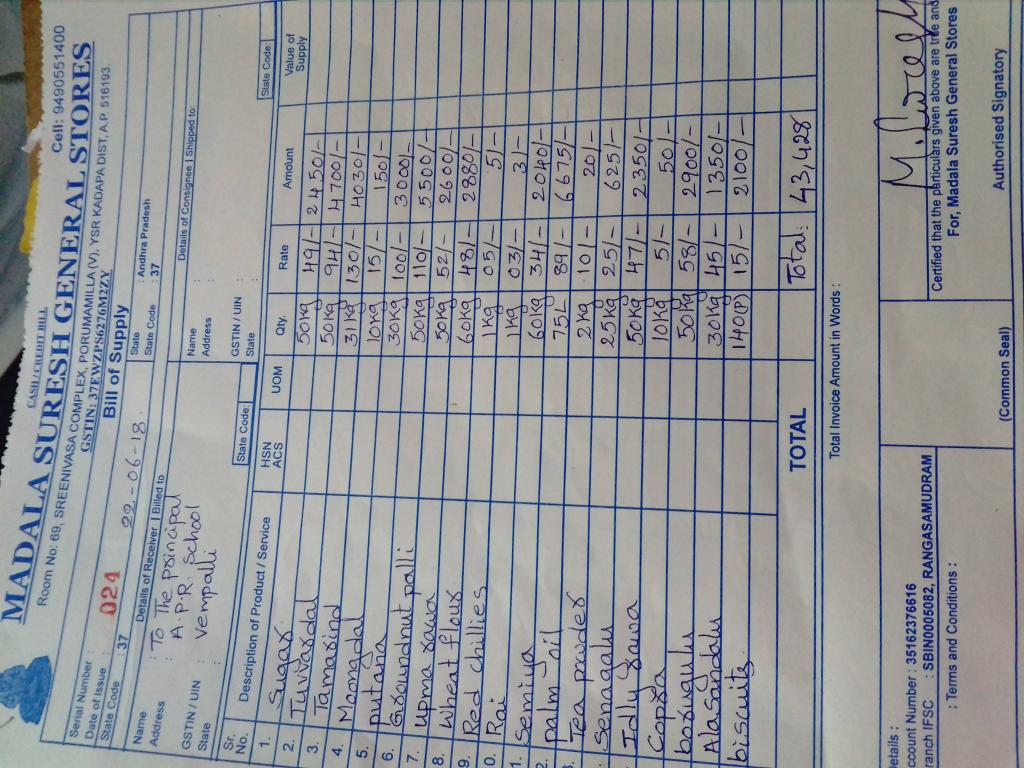 CASH / CREDIT BILL
Cell: 9490551400
MADALA SURESH GENERAL STORES
Room No: 69, SREENIVASA COMPLEX, PORUMAMILLA (V), YSR KADAPA DIST, A.P. 516193.
GSTIN: 37EWZPS6276M2ZY
Bill of Supply
Serial Number : 024
Date of Issue : 22-06-18.
State Code : 37
State : Andhra Pradesh
State Code : 37
Details of Receiver | Billed to
Name : To The principal
Address : A.P.R. School
Vempalli
GSTIN / UIN :
State : State Code:
Details of Consignee | Shipped to:
Name :
Address
GSTIN / UIN :
State : State Code:
Sr. No. Description of Product / Service HSN ACS UOM Qty. Rate Amount Value of Supply
1. Sugar 50kg 49/- 2450/-
2. Tuvardal 50kg 94/- 4700/-
3. Tamarind 31kg 130/- 4030/-
4. Moongdal 10kg 15/- 150/-
5. putana 30kg 100/- 3000/-
6. Groundnut palli 50kg 110/- 5500/-
7. upma rawa 50kg 52/- 2600/-
8. Wheat flour 60kg 48/- 2880/-
9. Red chillies 1kg 05/- 5/-
0. Rai 1kg 03/- 3/-
1. Semiya 60kg 34/- 2040/-
2. palm oil 75L 89/- 6675/-
3. Tea pruder 2kg 10/- 20/-
Senagalu 25kg 25/- 625/-
Idly rawa 50kg 47/- 2350/-
Copra 10kg 5/- 50/-
borugulu 50kg 58/- 2900/-
Alasandalu 30kg 45/- 1350/-
biscuits 140(P) 15/- 2100/-
TOTAL Total: 43,428
Total Invoice Amount in Words :
etails :
ccount Number : 35162376616
ranch IFSC : SBIN0005082, RANGASAMUDRAM
: Terms and Conditions :
(Common Seal)
Certified that the particulars given above are true and
For, Madala Suresh General Stores
Authorised Signatory